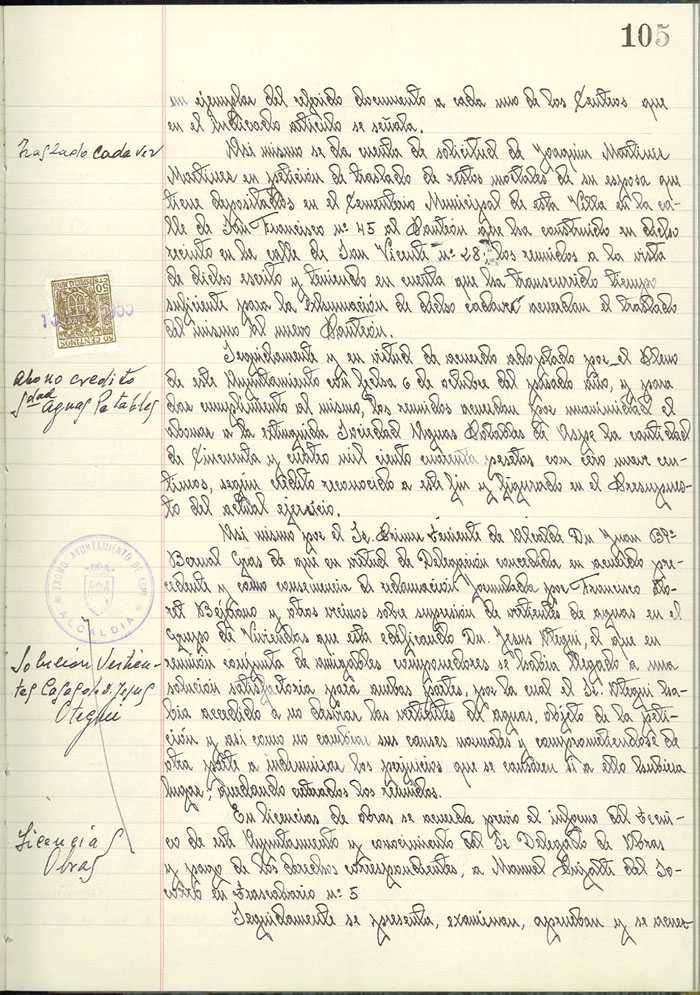 105
un ejemplar del referido documento a cada uno de los Centros que
en el indicado artículo se señala.
Traslado cadaver
Asi mismo se da cuenta de solicitud de Joaquin Martinez
Martinez en petición de traslado de restos mortales de su esposa que
tiene depositados en el Cementerio Municipal de esta Villa en la ca-
lle de San Francisco nº 45 al Panteón que ha construido en dicho
recinto en la calle de San Vicente nº 28; los reunidos a la vista
de dicho escrito y teniendo en cuenta que ha transcurrido tiempo
suficiente para la exhumación de dicho cadaver acuerdan el traslado
del mismo al nuevo Panteón.
50 CENTIMOS
Seguidamente y en virtud de acuerdo adoptado por el Pleno
Abono credito
Sdad Aguas Potables
de este Ayuntamiento con fecha 6 de octubre del pasado año, y para
dar cumplimiento al mismo, los reunidos acuerdan por unanimidad el
abonar a la extinguida Sociedad Aguas Potables de Aspe la cantidad
de Cincuenta y cuatro mil ciento cuarenta pesetas con cero nueve cen-
timos, según crédito reconocido a este fin y figurado en el Presupues-
to del actual ejercicio.
Asi mismo por el Sr. Primer Teniente de Alcalde Dn. Juan Btª
Bernal Gras da que en virtud de Delegación concedida en acuerdo pre-
cedente y como consecuencia de reclamación formulada por Francisco
y otros vecinos sobre supresión de vertientes de aguas en el
EXCMO AYUNTAMIENTO DE ASPE
ALCALDIA
Grupo de Viviendas que esta edificando Dn. Jesus Otegui, el que en
Solucion Vertien-
tes Casas de D. Jesus
Otegui
reunión conjunta de amigables componedores se habia llegado a una
solución satisfactoria para ambas partes, por la cual el Sr. Otegui ha-
bia accedido a no desviar las vertientes de aguas, objeto de la peti-
ción y asi como no cambiar sus causes normales y comprometiendose de
otra parte a indemnizar los perjuicios que se causaren si a ello hubiera
lugar, quedando enterados los reunidos.
Licencias
Obras
En licencias de obras se acuerda previo el informe del Tecni-
co de este Ayuntamiento y conocimiento del Sr Delegado de Obras
y pago de los derechos correspondientes, a Manuel del So-
corro en nº 5
Seguidamente se presenta, examinan, aprueban y se